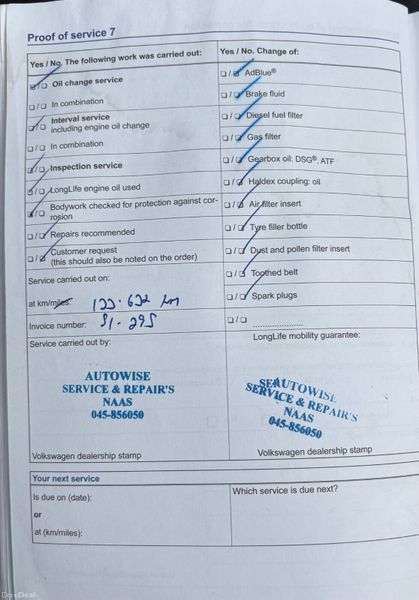 Proof of service 7
Yes / No. The following work was carried out:
Oil change service
In combination
Interval service
including engine oil change
In combination
Inspection service
LongLife engine oil used
Bodywork checked for protection against cor-
rosion
Repairs recommended
Customer request
(this should also be noted on the order)
Service carried out on:
at km/miles: km
Invoice number:
Service carried out by:
AUTOWISE
SERVICE & REPAIR'S
NAAS
045-856050
Volkswagen dealership stamp
Yes / No. Change of:
AdBlue®
Brake fluid
Diesel fuel filter
Gas filter
Gearbox oil: DSG®, ATF
Haldex coupling: oil
Air filter insert
Tyre filler bottle
Dust and pollen filter insert
Toothed belt
Spark plugs
LongLife mobility guarantee:
AUTOWISE
SERVICE & REPAIR'S
NAAS
045-856050
Volkswagen dealership stamp
Your next service
Is due on (date):
or
at (km/miles):
Which service is due next?
DoneDeal